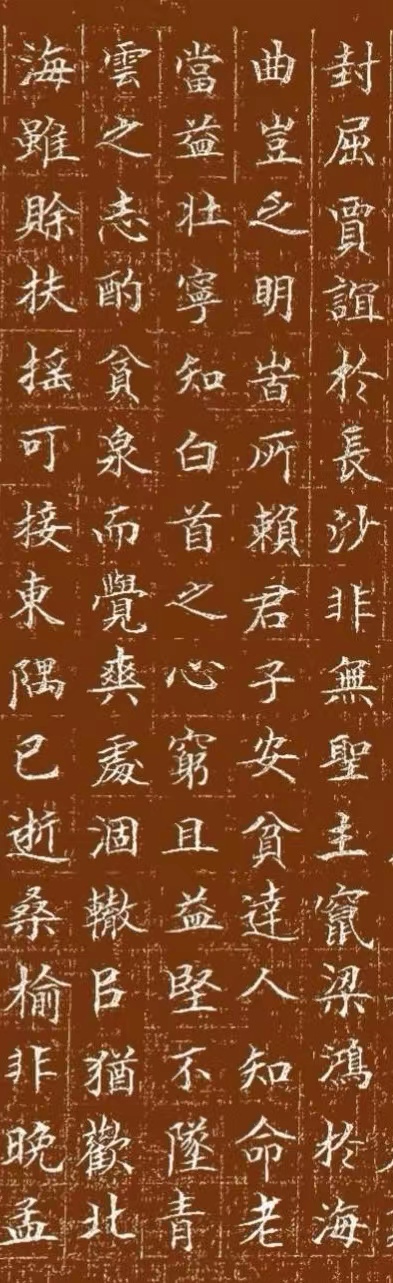 封屈賈誼於長沙非無聖主竄梁鴻於海
曲豈乏明旹所賴君子安貧達人知命老
當益壯寧知白首之心窮且益堅不墜青
雲之志酌貧泉而覺爽處涸轍㠯猶歡北
海雖賒扶搖可接東隅已逝桑榆非晚孟